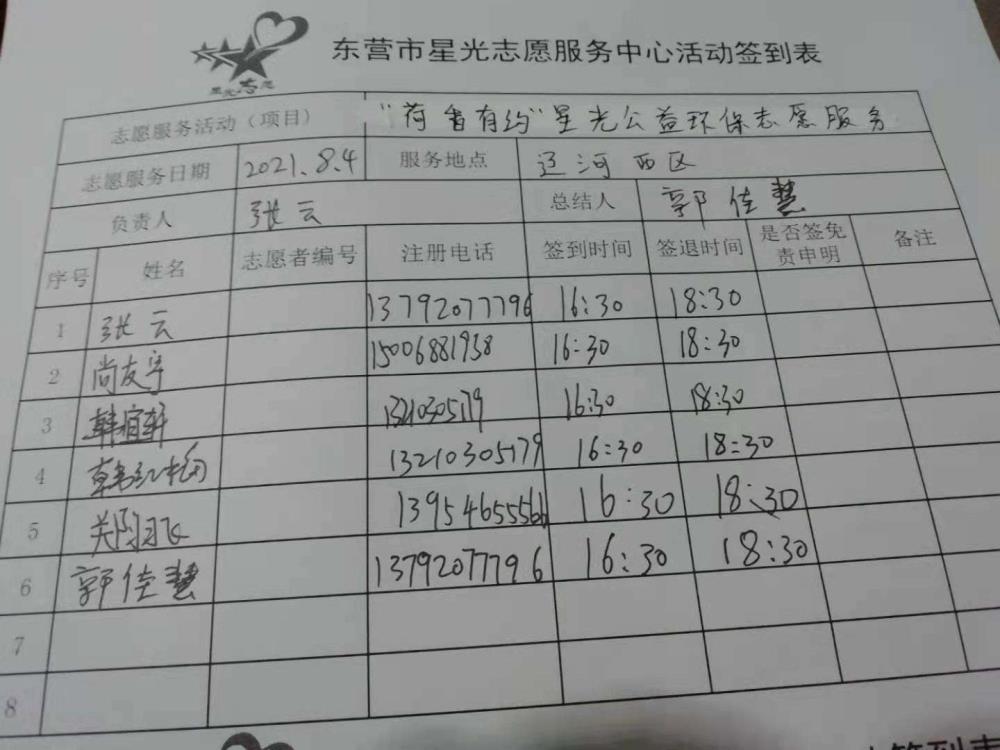 星光志愿
东营市星光志愿服务中心活动签到表
志愿服务活动（项目） "荷香有约"星光公益环保志愿服务
志愿服务日期 2021.8.4 服务地点 辽河西区
负责人 张云 总结人 郭佳慧
序号 姓名 志愿者编号 注册电话 签到时间 签退时间 是否签免责申明 备注
1 张云 13792077796 16:30 18:30
2 尚友宇 15006881938 16:30 18:30
3 韩宜轩 13210305179 16:30 18:30
4 韩红梅 13210305179 16:30 18:30
5 关阳飞 13954655566 16:30 18:30
6 郭佳慧 13792077796 16:30 18:30
7
8
签到表